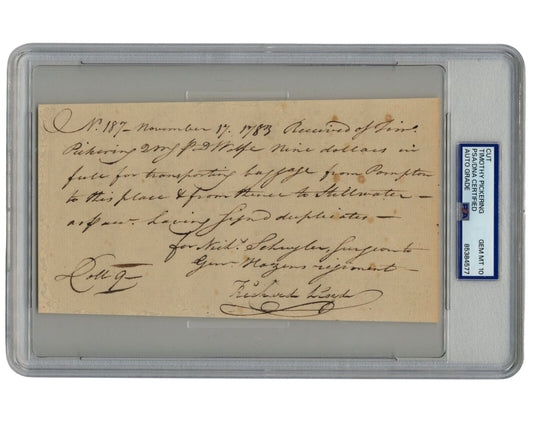 No. 187 - November 17. 1783 Received of Tim.
Pickering 2 Mg pr. D Wolfe Nine dollars in
full for transporting baggage from Pompton
to this place & from thence to Stillwater -
as pr acc. having Signd duplicates -
for Nichs. Schuyler, Surgeon to
Genl. Hazens regiment -
Doll 9 -
Richard
CUT
TIMOTHY PICKERING
PSA/DNA CERTIFIED
AUTO GRADE
GEM MT 10
85384577
PSA